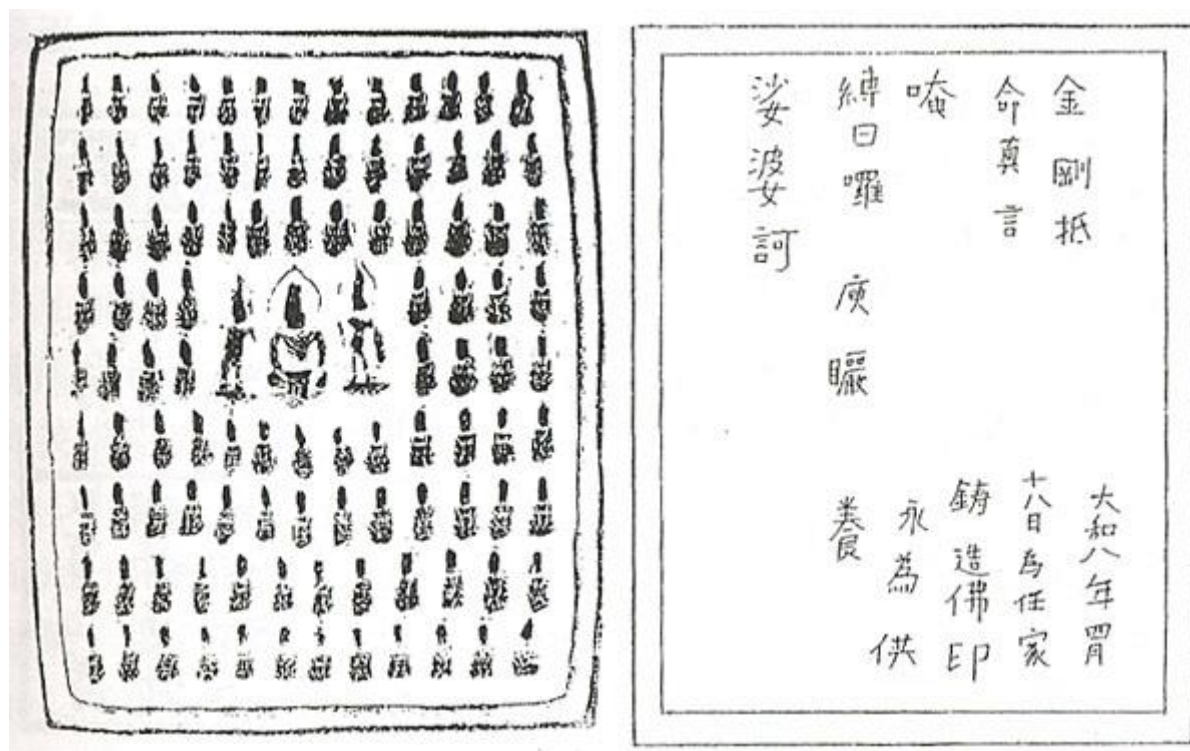 金剛抵
命真言
唵
縛日囉庾
娑婆訶
大和八年四月
十八日為任家
鑄造佛印
永為供
養